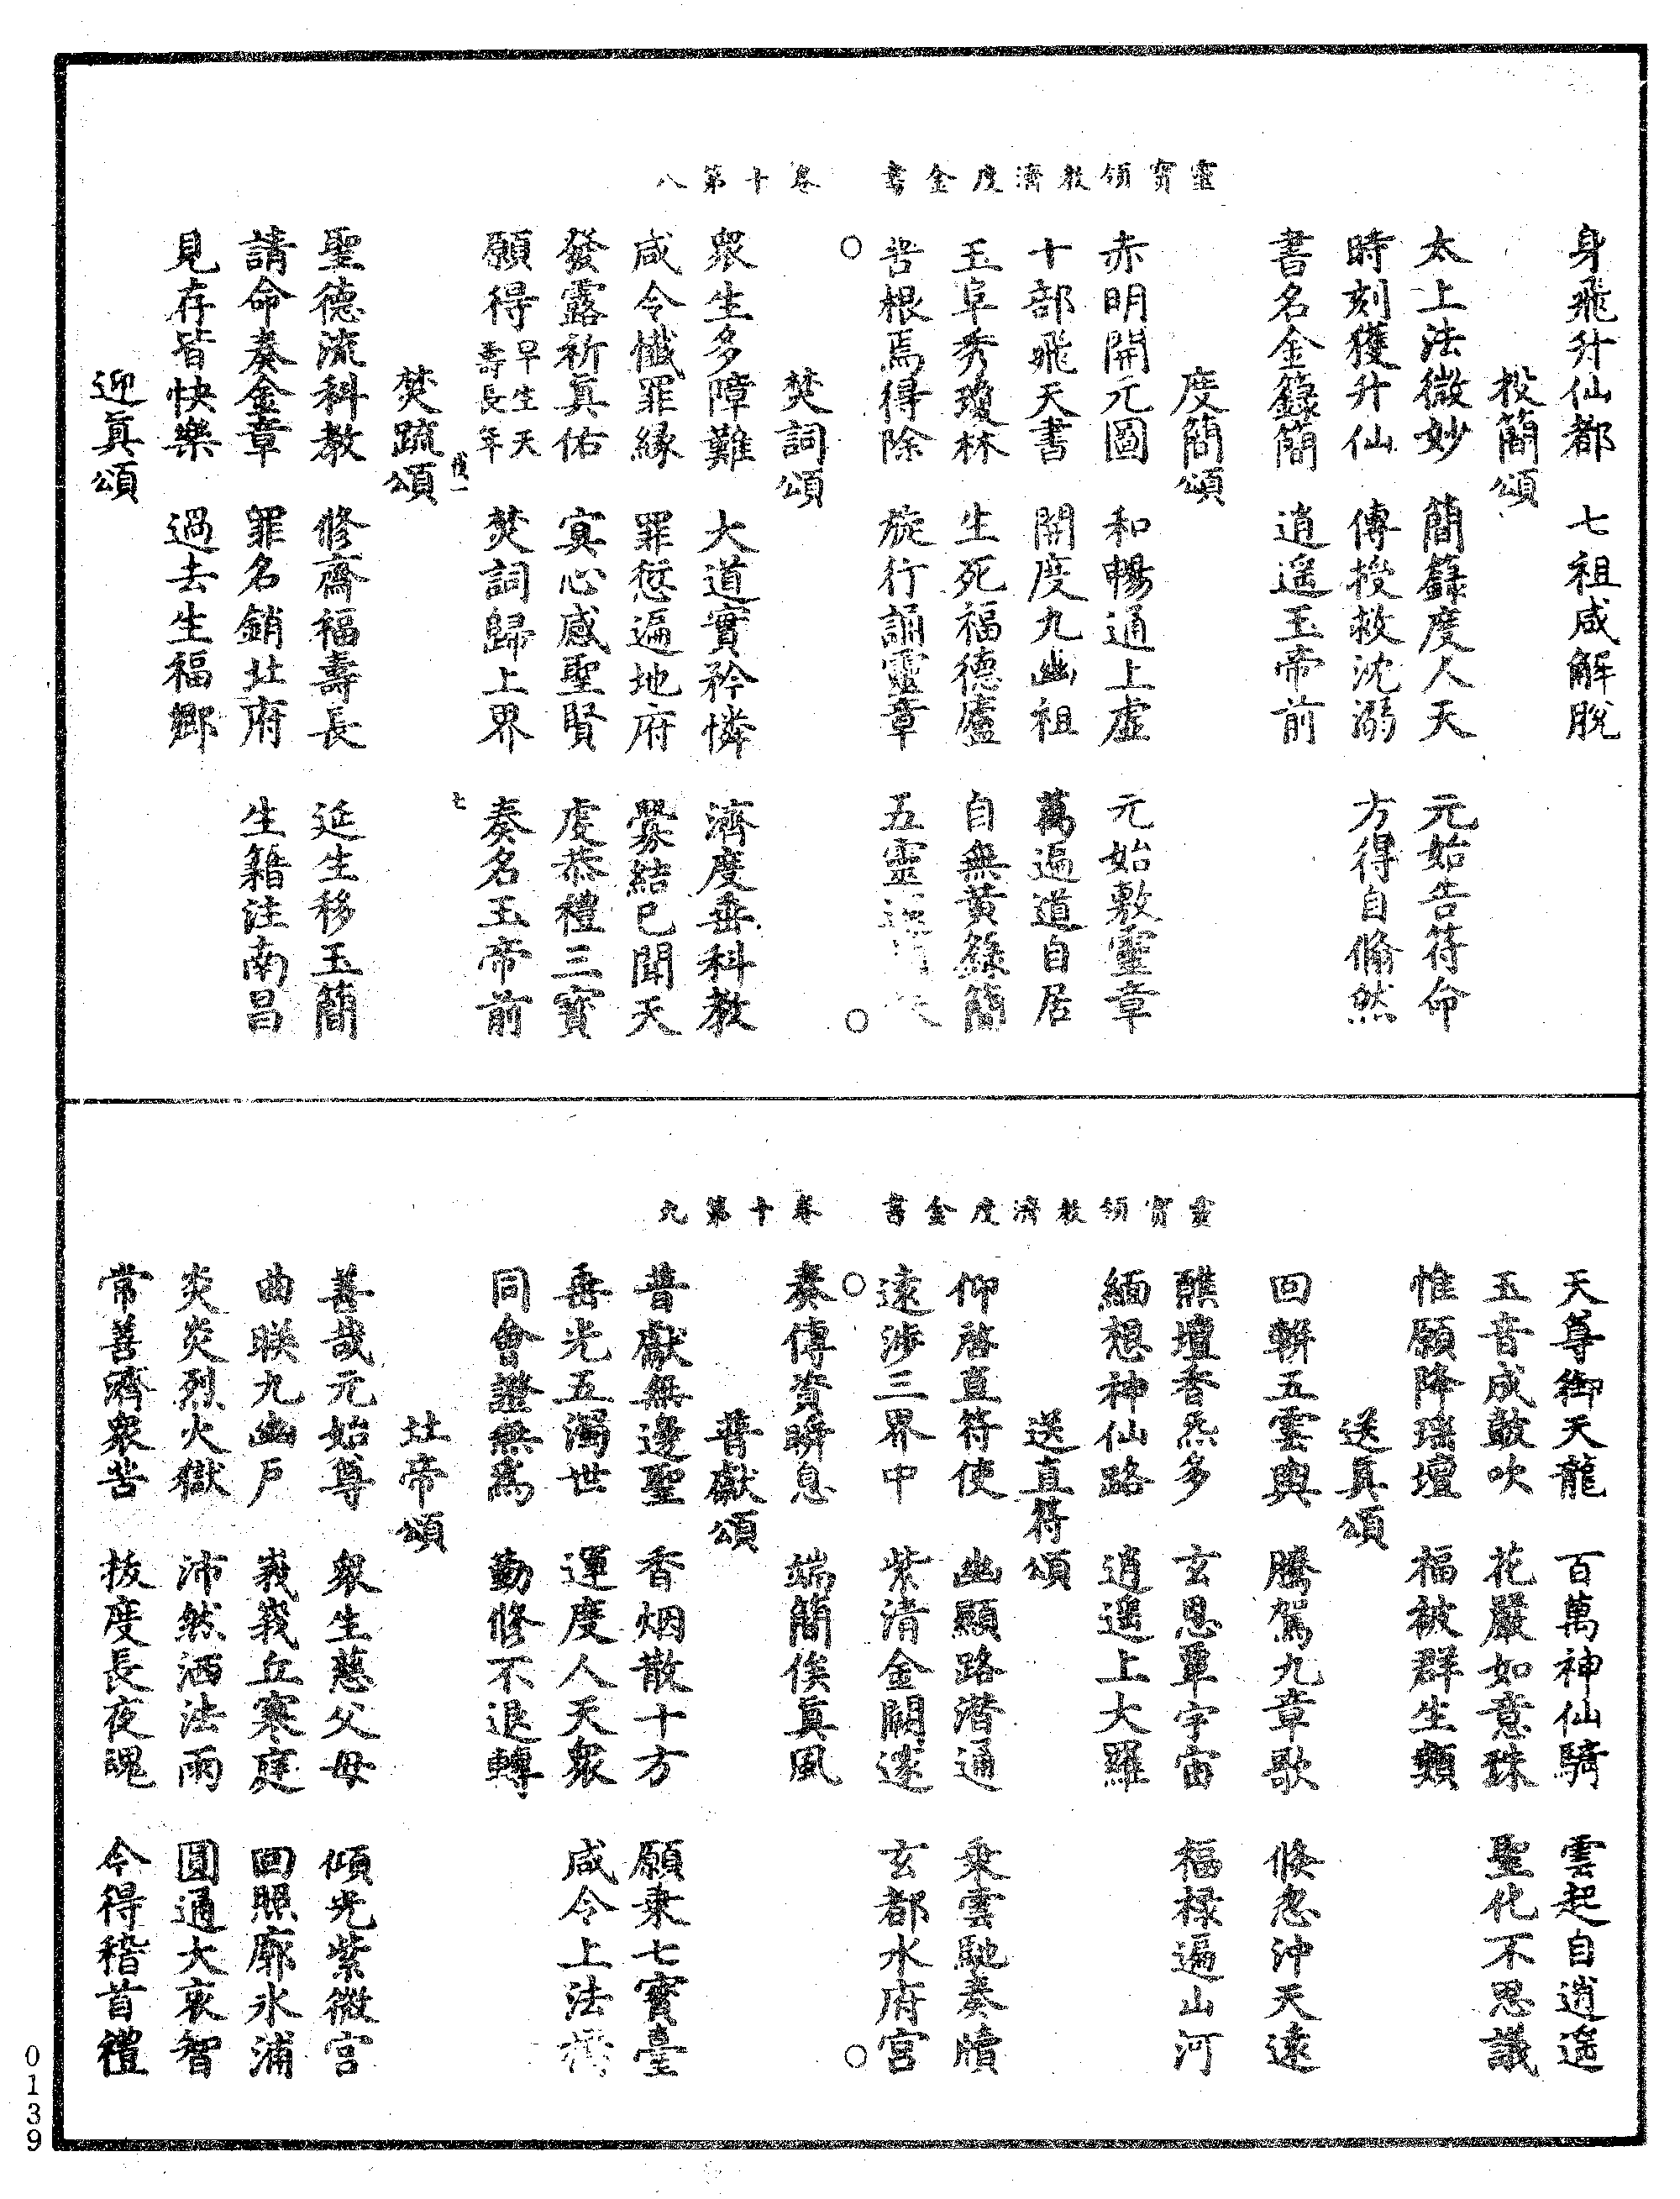 靈寶領教濟度金書　卷十第八
身飛升仙都　七祖咸解脫
投簡頌
太上法微妙　簡錄度人天　元始告符命
時刻獲升仙　傳授救沈溺　方得自翛然
書名金錄簡　逍遥玉帝前
度簡頌
赤明開元圖　和暢通上虛　元始敷靈章
十部飛天書　開度九幽祖　萬遍道自居
玉阜秀瓊林　生死福德廬　自無黃籙簡
咎根焉得除　旋行誦靈章　五靈
焚詞頌
衆生多障難　大道實矜憐　濟度垂科教
咸令懺罪緣　罪愆遍地府　釁結已聞天
發露祈眞佑　寘心感聖賢　虔恭禮三寶
願得早生天壽長年　焚詞歸上界　奏名玉帝前
一　七
焚疏頌
聖德流科教　修齋福壽長　延生移玉簡
請命奏金章　罪名銷北府　生籍注南昌
見存皆快樂　過去生福鄉
迎眞頌
靈寶領教濟度金書　卷十第九
天尊御天龍　百萬神仙騎　雲起自逍遥
五音成鼓吹　花嚴如意珠　聖化不思議
惟願降瑤壇　福被群生類
送眞頌
回輧五雲輿　騰駕九章歌　倏忽沖天遠
醮壇香炁多　玄恩覃宇宙　福祿遍山河
緬想神仙路　逍遥上大羅
送直符頌
仰啓直符使　幽顯路潛通　乘雲馳奏牘
遠涉三界中　紫清金闕邃　玄都水府宮
奏傳資瞬息　端簡俟眞風
普獻頌
昔獻無邊聖　香烟散十方　願乘七寶臺
垂光五濁世　運度人天衆　咸令上法橋
同會證無爲　勤修不退轉
北帝頌
善哉元始尊　衆生慈父母　傾光紫微宮
曲映九幽戶　峩峩丘寒庭　回照廓氷浦
炎炎烈火獄　沛然洒法雨　圓通大哀智
常善濟衆苦　拔度長夜魂　今得稽首禮
0139